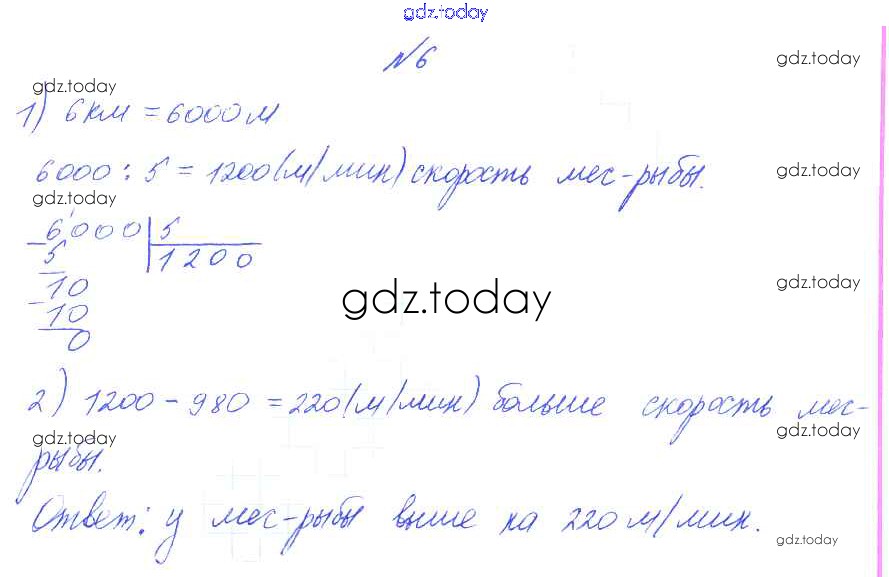 gdz.today
№6
gdz.today
gdz.today
1) 6 км = 6000 м
6000 : 5 = 1200 (м/мин) скорость меч-рыбы.
gdz.today
gdz.today
6000 | 5
5
1200
10
10
0
gdz.today
gdz.today
2) 1200 - 980 = 220 (м/мин) больше скорость меч-
gdz.today
gdz.today
рыбы.
Ответ: у меч-рыбы выше на 220 м/мин.
gdz.today